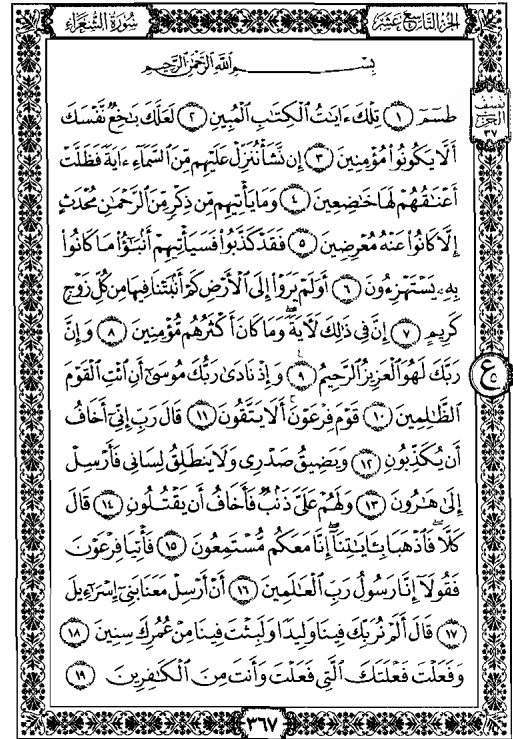 سُورَةُ الشُّعَرَاءِ
الجزء التاسع عشر
بِسْمِ اللَّهِ الرَّحْمَٰنِ الرَّحِيمِ
نصف الحزب ٣٧
طسٓمٓ ١ تِلْكَ ءَايَٰتُ ٱلْكِتَٰبِ ٱلْمُبِينِ ٢ لَعَلَّكَ بَٰخِعٌ نَّفْسَكَ
أَلَّا يَكُونُوا۟ مُؤْمِنِينَ ٣ إِن نَّشَأْ نُنَزِّلْ عَلَيْهِم مِّنَ ٱلسَّمَآءِ ءَايَةً فَظَلَّتْ
أَعْنَٰقُهُمْ لَهَا خَٰضِعِينَ ٤ وَمَا يَأْتِيهِم مِّن ذِكْرٍ مِّنَ ٱلرَّحْمَٰنِ مُحْدَثٍ
إِلَّا كَانُوا۟ عَنْهُ مُعْرِضِينَ ٥ فَقَدْ كَذَّبُوا۟ فَسَيَأْتِيهِمْ أَنۢبَٰٓؤُا۟ مَا كَانُوا۟
بِهِۦ يَسْتَهْزِءُونَ ٦ أَوَلَمْ يَرَوْا۟ إِلَى ٱلْأَرْضِ كَمْ أَنۢبَتْنَا فِيهَا مِن كُلِّ زَوْجٍ
كَرِيمٍ ٧ إِنَّ فِى ذَٰلِكَ لَءَايَةً ۖ وَمَا كَانَ أَكْثَرُهُم مُّؤْمِنِينَ ٨ وَإِنَّ
رَبَّكَ لَهُوَ ٱلْعَزِيزُ ٱلرَّحِيمُ ٩ وَإِذْ نَادَىٰ رَبُّكَ مُوسَىٰٓ أَنِ ٱئْتِ ٱلْقَوْمَ
ٱلظَّٰلِمِينَ ١٠ قَوْمَ فِرْعَوْنَ ۚ أَلَا يَتَّقُونَ ١١ قَالَ رَبِّ إِنِّىٓ أَخَافُ
أَن يُكَذِّبُونِ ١٢ وَيَضِيقُ صَدْرِى وَلَا يَنطَلِقُ لِسَانِى فَأَرْسِلْ
إِلَىٰ هَٰرُونَ ١٣ وَلَهُمْ عَلَىَّ ذَنۢبٌ فَأَخَافُ أَن يَقْتُلُونِ ١٤ قَالَ
كَلَّا ۖ فَٱذْهَبَا بِـَٔايَٰتِنَآ ۖ إِنَّا مَعَكُم مُّسْتَمِعُونَ ١٥ فَأْتِيَا فِرْعَوْنَ
فَقُولَآ إِنَّا رَسُولُ رَبِّ ٱلْعَٰلَمِينَ ١٦ أَنْ أَرْسِلْ مَعَنَا بَنِىٓ إِسْرَٰٓءِيلَ
١٧ قَالَ أَلَمْ نُرَبِّكَ فِينَا وَلِيدًا وَلَبِثْتَ فِينَا مِنْ عُمُرِكَ سِنِينَ ١٨
وَفَعَلْتَ فَعْلَتَكَ ٱلَّتِى فَعَلْتَ وَأَنتَ مِنَ ٱلْكَٰفِرِينَ ١٩
٣٦٧